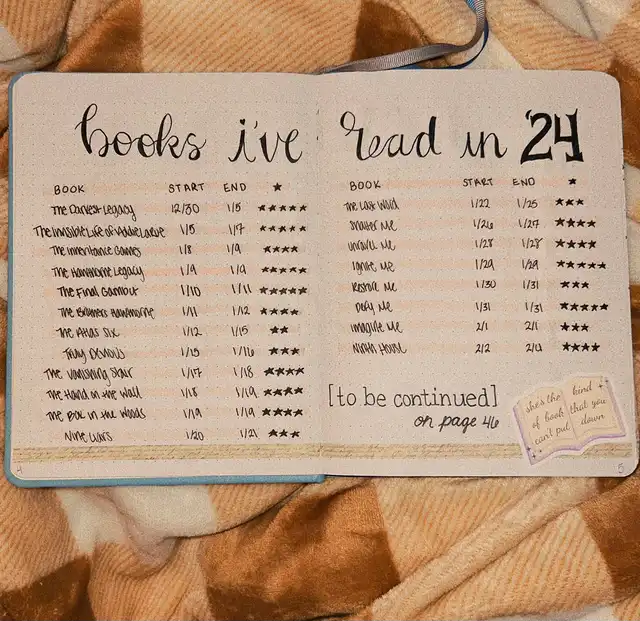 books i've
BOOK START END ★
The Darkest Legacy 12/30 1/5 ★★★★★
The Invisible Life of Addie Larue 1/5 1/7 ★★★★★
The Inheritance Games 1/8 1/9 ★★★★
The Hawthorne Legacy 1/9 1/9 ★★★★★
The Final Gambit 1/10 1/11 ★★★★★
The Brothers Hawthorne 1/11 1/12 ★★★★
The Atlas Six 1/12 1/15 ★★
Truly Devious 1/15 1/16 ★★★
The Vanishing Stair 1/17 1/18 ★★★★
The Hand on the Wall 1/18 1/19 ★★★★
The Box in the Woods 1/19 1/19 ★★★★
Nine Liars 1/20 1/21 ★★★
4
read in '24
BOOK START END ★
The Last Word 1/22 1/25 ★★★
Shatter Me 1/26 1/27 ★★★★
Unravel Me 1/28 1/28 ★★★★
Ignite Me 1/29 1/29 ★★★★★
Restore Me 1/30 1/31 ★★★
Defy Me 1/31 1/31 ★★★★★
Imagine Me 2/1 2/1 ★★★
Ninth House 2/2 2/4 ★★★★
[to be continued]
on page 46
she's the kind
of book that you
can't put down
5